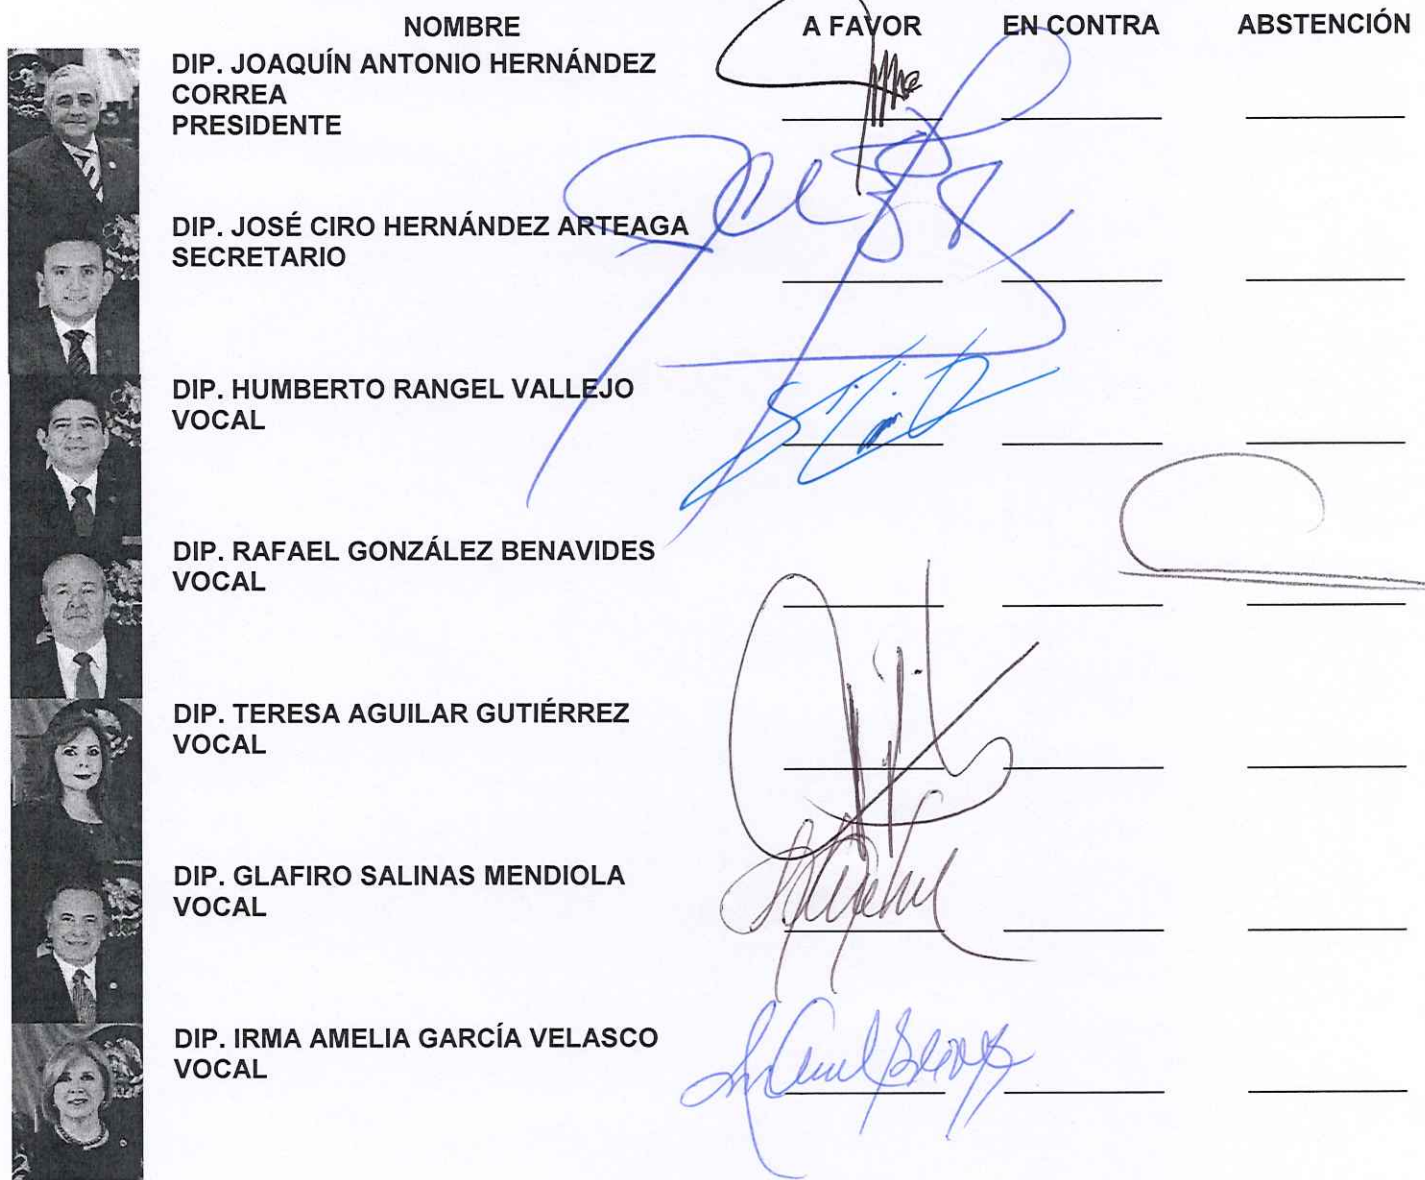 NOMBRE A FAVOR EN CONTRA ABSTENCIÓN
DIP. JOAQUÍN ANTONIO HERNÁNDEZ
CORREA
PRESIDENTE
DIP. JOSÉ CIRO HERNÁNDEZ ARTEAGA
SECRETARIO
DIP. HUMBERTO RANGEL VALLEJO
VOCAL
DIP. RAFAEL GONZÁLEZ BENAVIDES
VOCAL
DIP. TERESA AGUILAR GUTIÉRREZ
VOCAL
DIP. GLAFIRO SALINAS MENDIOLA
VOCAL
DIP. IRMA AMELIA GARCÍA VELASCO
VOCAL